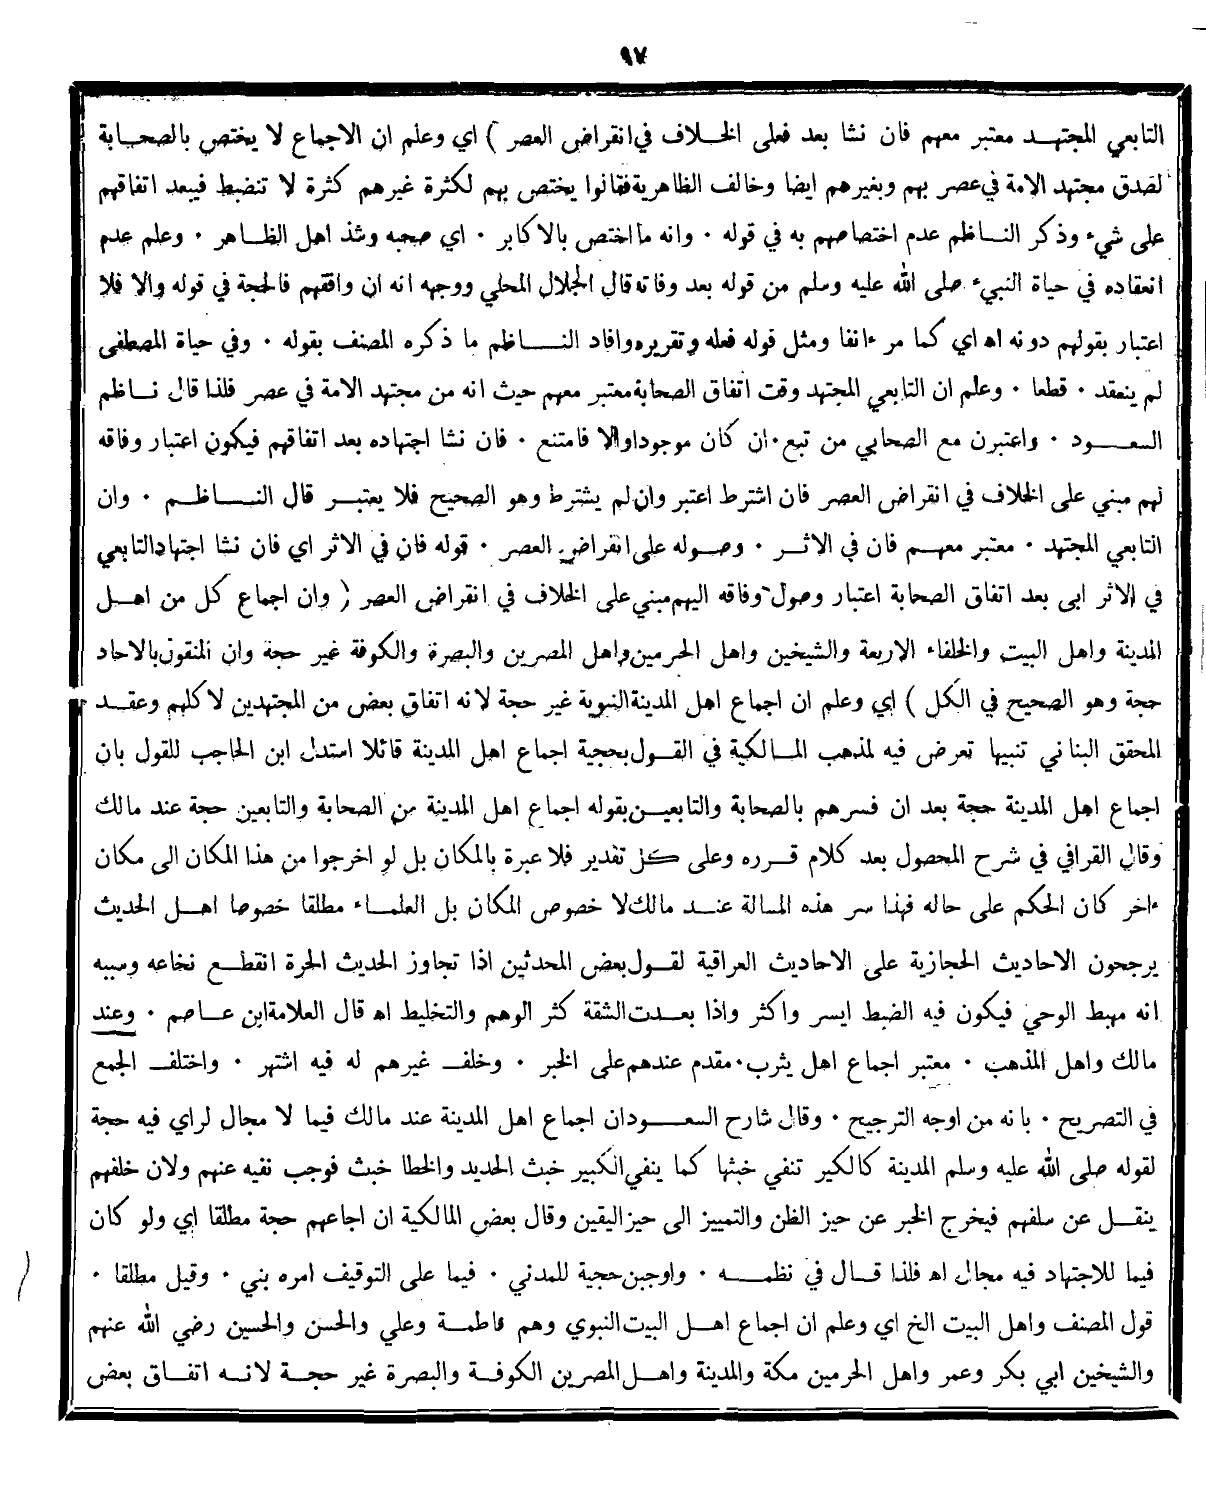 ٩٧
التابعي المجتهد معتبر معهم فان نشا بعد فعلى الخلاف في انقراض العصر ) اي وعلم ان الاجماع لا يختص بالصحابة
لصدق مجتهد الامة في عصر بهم وبغيرهم ايضا وخالف الظاهرية فقالوا يختص بهم لكثرة غيرهم كثرة لا تنضبط فيبعد اتفاقهم
على شيء وذكر الناظم عدم اختصاصهم به في قوله ٠ وانه ما اختص بالاكابر ٠ اي صحبه وشذ اهل الظاهر ٠ وعلم عدم
انعقاده في حياة النبيء صلى الله عليه وسلم من قوله بعد وفاته قال الجلال المحلي ووجهه انه ان وافقهم فالحجة في قوله والا فلا
اعتبار بقولهم دونه اه اي كما مر ءانفا ومثل قوله فعله وتقريره وافاد الناظم ما ذكره المصنف بقوله ٠ وفي حياة المصطفى
لم ينعقد ٠ قطعا ٠ وعلم ان التابعي المجتهد وقت اتفاق الصحابة معتبر معهم حيث انه من مجتهد الامة في عصر فلذا قال ناظم
السعود ٠ واعتبرن مع الصحابي من تبع ٠ ان كان موجودا والا فامتنع ٠ فان نشا اجتهاده بعد اتفاقهم فيكون اعتبار وفاقه
لهم مبني على الخلاف في انقراض العصر فان اشترط اعتبر وان لم يشترط وهو الصحيح فلا يعتبر قال الناظم ٠ وان
التابعي المجتهد ٠ معتبر معهم فان في الاثر ٠ وصوله على انقراض العصر ٠ قوله فان في الاثر اي فان نشا اجتهاد التابعي
في الاثر ابى بعد اتفاق الصحابة اعتبار وصول وفاقه اليهم مبني على الخلاف في انقراض العصر ( وان اجماع كل من اهل
المدينة واهل البيت والخلفاء الاربعة والشيخين واهل الحرمين واهل المصرين والبصرة والكوفة غير حجة وان المنقول بالاحاد
حجة وهو الصحيح في الكل ) اي وعلم ان اجماع اهل المدينة النبوية غير حجة لانه اتفاق بعض من المجتهدين لا كلهم وعقد
المحقق البناني تنبيها تعرض فيه لمذهب المالكية في القول بحجية اجماع اهل المدينة قائلا استدل ابن الحاجب للقول بان
اجماع اهل المدينة حجة بعد ان فسرهم بالصحابة والتابعين بقوله اجماع اهل المدينة من الصحابة والتابعين حجة عند مالك
وقال القرافي في شرح المحصول بعد كلام قرره وعلى كل تقدير فلا عبرة بالمكان بل لو اخرجوا من هذا المكان الى مكان
ءاخر كان الحكم على حاله فهذا سر هذه المسالة عند مالك لا خصوص المكان بل العلماء مطلقا خصوصا اهل الحديث
يرجحون الاحاديث الحجازية على الاحاديث العراقية لقول بعض المحدثين اذا تجاوز الحديث الحرة انقطع نخاعه وسببه
انه مهبط الوحي فيكون فيه الضبط ايسر واكثر واذا بعدت الشقة كثر الوهم والتخليط اه قال العلامة ابن عاصم ٠ وعند
مالك واهل المذهب ٠ معتبر اجماع اهل يثرب ٠ مقدم عندهم على الخبر ٠ وخلف غيرهم له فيه اشتهر ٠ واختلف الجمع
في التصريح ٠ بانه من اوجه الترجيح ٠ وقال شارح السعود ان اجماع اهل المدينة عند مالك فيما لا مجال لراي فيه حجة
لقوله صلى الله عليه وسلم المدينة كالكير تنفي خبثها كما ينفي الكبير خبث الحديد والخطا خبث فوجب نفيه عنهم ولان خلفهم
ينقل عن سلفهم فيخرج الخبر عن حيز الظن والتمييز الى حيز اليقين وقال بعض المالكية ان اجاعهم حجة مطلقا اي ولو كان
فيما للاجتهاد فيه مجال اه فلذا قال في نظمه ٠ واوجبن حجية للمدني ٠ فيما على التوقيف امره بني ٠ وقيل مطلقا ٠
قول المصنف واهل البيت الخ اي وعلم ان اجماع اهل البيت النبوي وهم فاطمة وعلي والحسن والحسين رضي الله عنهم
والشيخين ابي بكر وعمر واهل الحرمين مكة والمدينة واهل المصرين الكوفة والبصرة غير حجة لانه اتفاق بعض